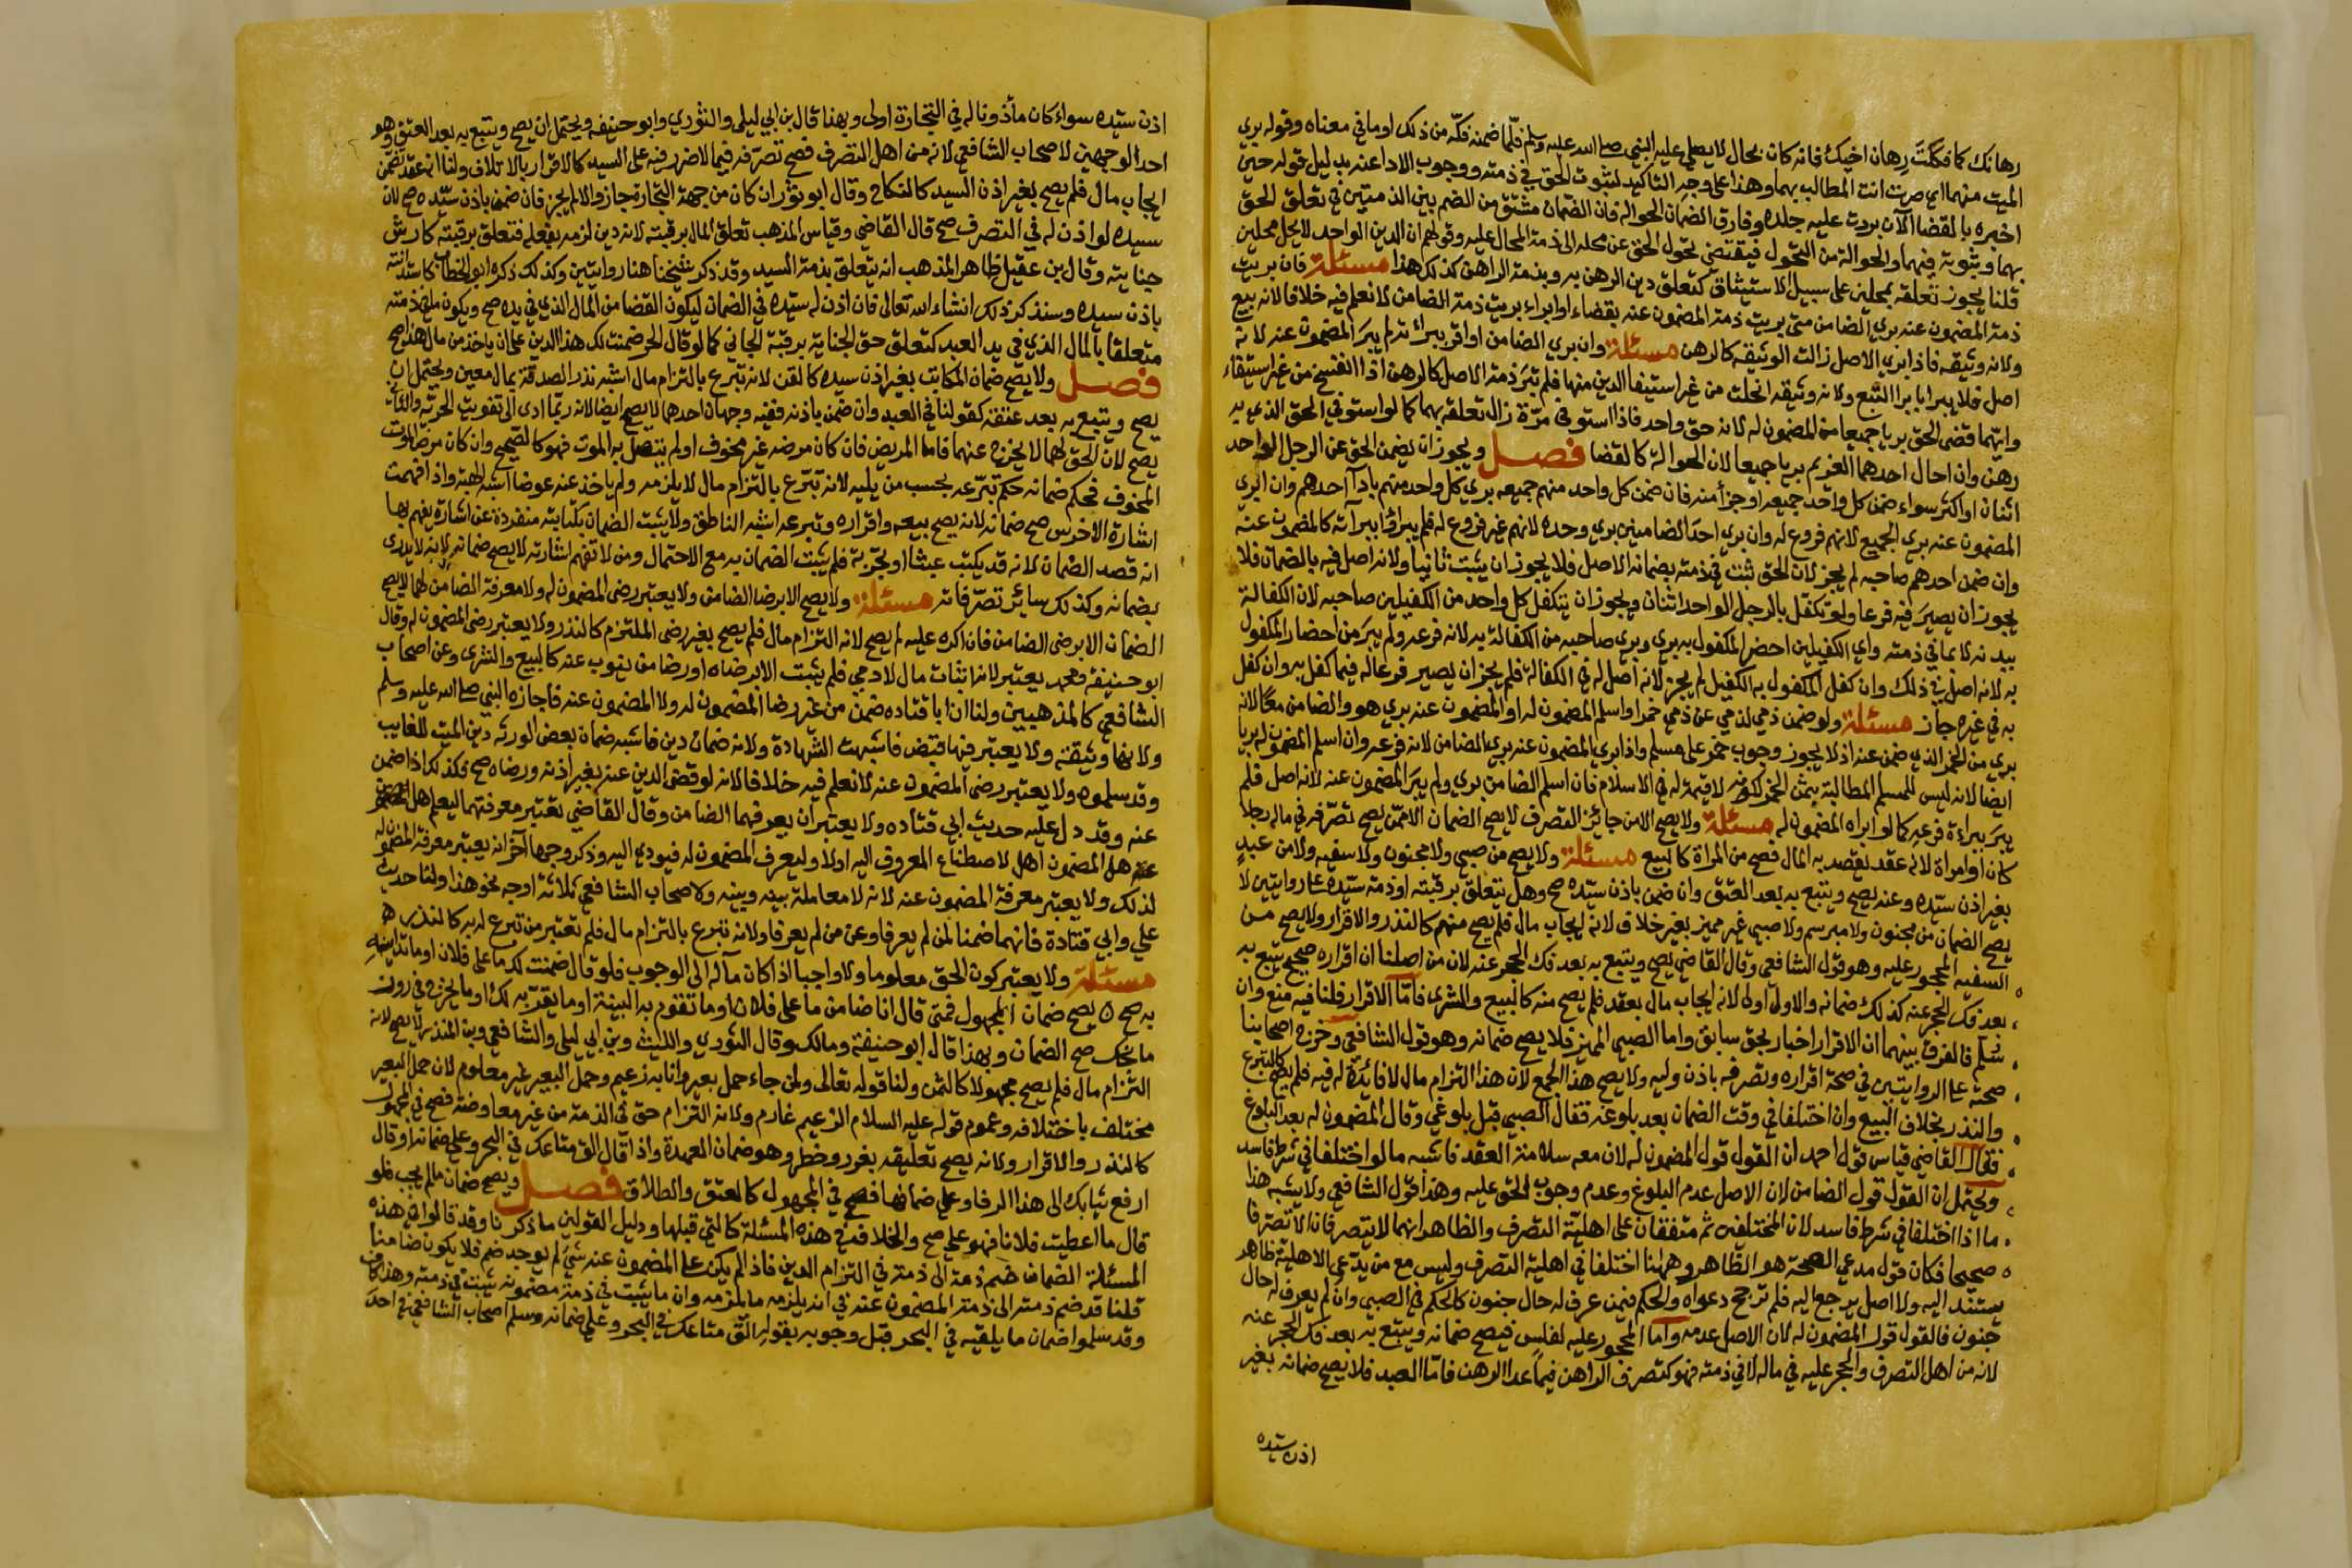 رهانك كما فككت رهان اخيك فانه كان بحال لا يصلي عليه النبي صلى الله عليه وسلم فلما ضمنه فكه من ذلك او ما في معناه وقوله بري
الميت منهما اي صرت انت المطالب بهما وهذا على وجه التاكيد لثبوت الحق في ذمته ووجوب الادا عنه بدليل قوله حين
اخبره بالقضا الآن بردت عليه جلده وفارق الضمان الحواله فان الضمان مشتق من الضم بين الذمتين في تعلق الحق
بهما وثبوته فيهما والحوالة من التحول فيقتضي تحول الحق عن محله الى ذمة المحال عليه وقولهم ان الدين الواحد لا يحل محلين
قلنا يجوز تعلقه بمحلين على سبيل الاستيثاق كتعلق دين الرهن به وبذمة الراهن كذلك هذا مسئلة فان بريت
ذمة المضمون عنه بري الضامن متى بريت ذمة المضمون عنه بقضاء او ابراء بريت ذمة الضامن لا نعلم فيه خلافا لانه تبع
ولانه وثيقه فاذا بري الاصل زالت الوثيقه كالرهن مسئلة وان بري الضامن او اقر ببراءته لم يبرا المضمون عنه لانه
اصل فلا يبرا بابرا التبع ولانه وثيقه انحلت من غير استيفا الدين منها فلم تبر ذمة الاصل كالرهن اذا انفسخ من غير استيفاء
وايهما قضى الحق بريا جميعا من المضمون له لانه حق واحد فاذا استوفي مرة زال تعلقه بهما كما لو استوفي الحق الذي به
رهن وان احال احدهما الغريم بريا جميعا لان الحوالة كالقضا فصل ويجوز ان يضمن الحق عن الرجل الواحد
اثنان او اكثر سواء ضمن كل واحد جميعه او جزأ منه فان ضمن كل واحد منهم جميعه بري كل واحد منهم بادآ احدهم وان ابري
المضمون عنه بري الجميع لانهم فروع له وان بري احد الضامنين بري وحده لانهم غير فروع له فلم يبراوا ببرآته كالمضمون عنه
وان ضمن احدهم صاحبه لم يجز لان الحق ثبت في ذمته بضمانه الاصل فلا يجوز ان يثبت ثانيا ولانه اصل فيه بالضمان فلا
يجوز ان يصير فيه فرعا ولو تكفل بالرجل الواحد اثنان ويجوز ان يتكفل كل واحد من الكفيلين صاحبه لان الكفالة
ببدنه لا بما في ذمته واي الكفيلين احضر المكفول به بري وبري صاحبه من الكفالة به لانه فرعه ولم يبر من احضار المكفول
به لانه اصل في ذلك وان كفل المكفول به الكفيل لم يجز لانه اصل له في الكفالة فلم يجز ان يصير فرعا له فيما كفل به وان كفل
به في غيره جاز مسئلة ولو ضمن ذمي لذمي عن ذمي خمرا واسلم المضمون له او المضمون عنه بري هو والضامن معا لانه
بري من الخمر الذي ضمن عنه اذ لا يجوز وجوب خمر على مسلم واذا بري المضمون عنه بري الضامن لانه فرعه وان اسلم المضمون له بريا
ايضا لانه ليس للمسلم المطالبة بثمن الخمر لكونه لا قيمة له في الاسلام فان اسلم الضامن بري ولم يبر المضمون عنه لانه اصل فلم
يبر ببراءة فرعه كما لو ابراه المضمون له مسئلة ولا يصح الا من جائز التصرف لا يصح الضمان الا ممن يصح تصرفه في ماله رجلا
كان او امراة لانه عقد يقصد به المال فصح من المراة كالبيع مسئلة ولا يصح من صبي ولا مجنون ولا سفيه ولا من عبد
بغير اذن سيده وعنه يصح ويتبع به بعد العتق وان ضمن باذن سيده صح وهل يتعلق برقبته او ذمة سيده على روايتين لا
يصح الضمان من مجنون ولا مبرسم ولا صبي غير مميز بغير خلاف لانه ايجاب مال فلم يصح منهم كالنذر والاقرار ولا يصح من
السفيه المحجور عليه وهو قول الشافعي وقال القاضي يصح ويتبع به بعد فك الحجر عنه لان من اصلنا ان اقراره صحيح يتبع به
بعد فك الحجر عنه كذلك ضمانه والاول اولى لانه ايجاب مال بعقد فلم يصح منه كالبيع والشرى فاما الاقرار فلنا فيه منع وان
سلم فالفرق بينهما ان الاقرار اخبار بحق سابق واما الصبي المميز فلا يصح ضمانه وهو قول الشافعي وخرج اصحابنا
صحته على الروايتين في صحة اقراره وتصرفه باذن وليه ولا يصح هذا الجمع لان هذا التزام مال لا فائدة له فيه فلم يصح كالتبرع
والنذر بخلاف البيع وان اختلفا في وقت الضمان بعد بلوغه فقال الصبي قبل بلوغي وقال المضمون له بعد البلوغ
فقال القاضي قياس قول احمد ان القول قول المضمون له لان معه سلامة العقد فاشبه ما لو اختلفا في شرط فاسد
ويحتمل ان القول قول الضامن لان الاصل عدم البلوغ وعدم وجوب الحق عليه وهذا قول الشافعي ولا يشبه هذا
ما اذا اختلفا في شرط فاسد لان المختلفين ثم متفقان على اهلية التصرف والظاهر انهما لا يتصرفان الا تصرفا
صحيحا فكان قول مدعي الصحة هو الظاهر وههنا اختلفا في اهلية التصرف وليس مع من يدعي الاهلية ظاهر
يستند اليه ولا اصل يرجع اليه فلم ترجح دعواه والحكم فيمن عرف له حال جنون كالحكم في الصبي وان لم يعرف له حال
جنون فالقول قول المضمون له لان الاصل عدمه واما المحجور عليه لفلس فيصح ضمانه ويتبع به بعد فك الحجر عنه
لانه من اهل التصرف والحجر عليه في ماله لا في ذمته فهو كتصرف الراهن فيما عدا الرهن فاما العبد فلا يصح ضمانه بغير
اذن سيده
اذن سيده سواء كان مأذونا له في التجارة اولى وبهذا قال بن ابي ليلى والثوري وابو حنيفه ويحتمل ان يصح ويتبع به بعد العتق وهو
احد الوجهين لاصحاب الشافعي لانه من اهل التصرف فصح تصرفه فيما لا ضرر فيه على السيد كالاقرار بالاتلاف ولنا انه عقد تضمن
ايجاب مال فلم يصح بغير اذن السيد كالنكاح وقال ابو ثور ان كان من جهة التجارة جاز والا لم يجز فان ضمن باذن سيده صح لان
سيده لو اذن له في التصرف صح قال القاضي وقياس المذهب تعلق المال برقبته لانه دين لزمه بفعله فتعلق برقبته كارش
جنايته وقال بن عقيل ظاهر المذهب انه يتعلق بذمة السيد وقد ذكر شيخنا هنا روايتين وكذلك ذكره ابو الخطاب كاستدانته
باذن سيده وسنذكر ذلك انشاء الله تعالى فان اذن له سيده في الضمان ليكون القضا من المال الذي في يده صح ويكون ما في ذمته
متعلقا بالمال الذي في يد العبد كتعلق حق الجناية برقبة الجاني كما لو قال الحر ضمنت لك هذا الدين على ان ياخذ من مال هذا صح
فصل ولا يصح ضمان المكاتب بغير اذن سيده كالقن لانه تبرع بالتزام مال اشبه نذر الصدقة بمال معين ويحتمل ان
يصح ويتبع به بعد عتقه كقولنا في العبد وان ضمن باذنه ففيه وجهان احدهما لا يصح ايضا لانه ربما ادى الى تفويت الحرية والثاني
يصح لان الحق لهما لا يخرج عنهما فاما المريض فان كان مرضه غير مخوف او لم يتصل به الموت فهو كالصحيح وان كان مرض الموت
المخوف فحكم ضمانه حكم تبرعه يحسب من ثلثه لانه تبرع بالتزام مال لا يلزمه ولم ياخذ عنه عوضا اشبه الهبة واذا فهمت
اشارة الاخرس صح ضمانه لانه يصح بيعه واقراره وتبرعه اشبه الناطق ولا يثبت الضمان بكتابته منفردة عن اشارة يفهم بها
انه قصد الضمان لانه قد يكتب عبثا او تجربة فلم يثبت الضمان به مع الاحتمال ومن لا تفهم اشارته لا يصح ضمانه لانه لا يدرى
بضمانه وكذلك سائر تصرفاته مسئلة ولا يصح الا برضا الضامن ولا يعتبر رضى المضمون له ولا معرفة الضامن لهما لا يصح
الضمان الا برضى الضامن فان اكره عليه لم يصح لانه التزام مال فلم يصح بغير رضى الملتزم كالنذر ولا يعتبر رضى المضمون له وقال
ابو حنيفه ومحمد يعتبر لانه اثبات مال لادمي فلم يثبت الا برضاه او رضا من ينوب عنه كالبيع والشرى وعن اصحاب
الشافعي كالمذهبين ولنا ان ابا قتاده ضمن من غير رضا المضمون له ولا المضمون عنه فاجازه النبي صلى الله عليه وسلم
ولانها وثيقة ولا يعتبر فيها قبض فاشبهت الشهادة ولانه ضمان دين فاشبه ضمان بعض الورثه دين الميت للغايب
وقد سلموه ولا يعتبر رضى المضمون عنه لا نعلم فيه خلافا لانه لو قضى الدين عنه بغير اذنه ورضاه صح فكذلك اذا ضمن
عنه وقد دل عليه حديث ابي قتاده ولا يعتبر ان يعرفهما الضامن وقال القاضي تعتبر معرفتهما ليعلم هل المضمون
عنه هل المضمون اهل لاصطناع المعروف اليه اولا وليعرف المضمون له فيودي اليه وذكر وجها آخر انه يعتبر معرفة المضمون له
لذلك ولا يعتبر معرفة المضمون عنه لانه لا معاملة بينه وبينه ولاصحاب الشافعي ثلاثة اوجه نحو هذا ولنا حديث
علي وابي قتادة فانهما ضمنا لمن لم يعرفا وعن من لم يعرفا ولانه تبرع بالتزام مال فلم تعتبر من تبرع له به كالنذر
مسئلة ولا يعتبر كون الحق معلوما ولا واجبا اذا كان مآله الى الوجوب فلو قال ضمنت لك ما على فلان او ما تداينه
به صح يصح ضمان المجهول فمتى قال انا ضامن ما على فلان او ما تقوم به البينة او ما يقر به لك او ما يخرج في روز
مانجك صح الضمان وبهذا قال ابو حنيفة ومالك وقال الثوري والليث وبن ابي ليلى والشافعي وبن المنذر لا يصح لانه
التزام مال فلم يصح مجهولا كالثمن ولنا قوله تعالى ولمن جاء حمل بعير وانا به زعيم وحمل البعير غير معلوم لان حمل البعير
مختلف باختلافه وعموم قوله عليه السلام الزعيم غارم ولانه التزام حق في الذمة من غير معاوضة فصح في المجهول
كالنذر والاقرار ولانه يصح تعليقه بغرر وخطر وهو ضمان العهدة واذا قال الق متاعك في البحر وعلي ضمانه او قال
ارفع ثيابك الى هذا الرفا وعلي ضمانها فصح في المجهول كالعتق والطلاق فصل ويصح ضمان مالم يجب فلو
قال ما اعطيت فلانا فهو علي صح والخلاف في هذه المسئلة كالتي قبلها ودليل القولين ما ذكرنا وقد قالوا في هذه
المسئلة الضمان ضم ذمة الى ذمة في التزام الدين فاذا لم يكن على المضمون عنه شيء لم يوجد ضم فلا يكون ضامنا
قلنا قد ضم ذمته الى ذمة المضمون عنه في انه يلزمه ما لزمه وان ما يثبت في ذمة مضمونه يثبت في ذمته وهذا كاف
وقد سلموا ضمان ما يلقيه في البحر قبل وجوبه بقوله الق متاعك في البحر وعلي ضمانه وسلم اصحاب الشافعي في احد